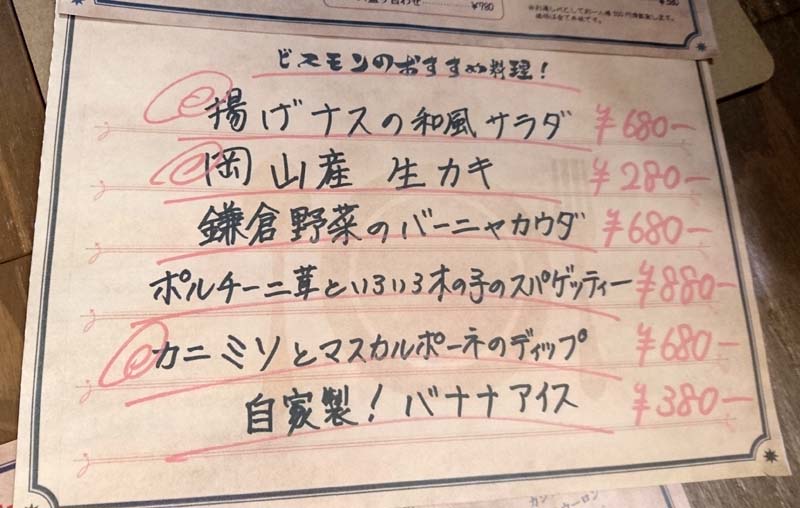 ¥780
ビスモンのおすすめ料理!
揚げナスの和風サラダ ¥680-
岡山産 生カキ ¥280-
鎌倉野菜のバーニャカウダ ¥680-
ポルチーニ茸といろいろ木の子のスパゲッティー ¥880-
カニミソとマスカルポーネのディップ ¥680-
自家製!バナナアイス ¥380-
ウーロン